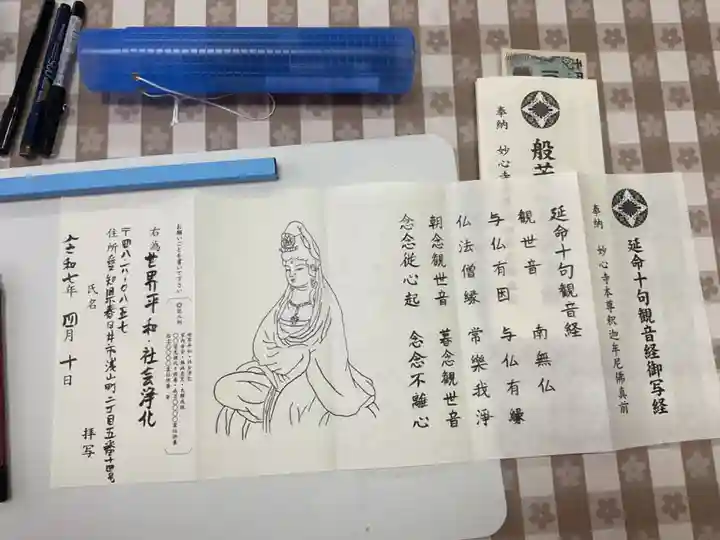 延命十句観音経御写経
奉納 妙心寺本尊釈迦牟尼佛真前
延命十句観音経
観世音 南無仏
与仏有因 与仏有縁
仏法僧縁 常樂我淨
朝念観世音 暮念観世音
念念從心起 念念不離心
お願いごとを書いて下さい
右為 世界平和・社会浄化
〒四八六-〇八五七
住所 愛知県春日井市浅山町二丁目五番十四号
氏名 拝写
令和七年 四月 十日
奉納 妙心寺
般若